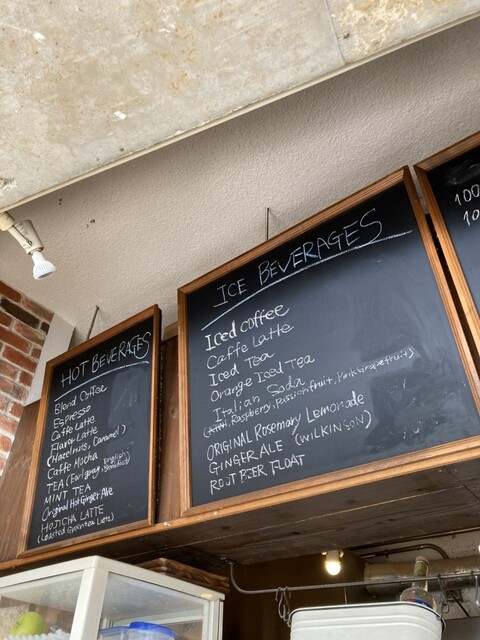 HOT BEVERAGES
Blend Coffee
Espresso
Caffe Latte
Flavor Latte
(Hazelnuts, Caramel)
Caffe Mocha
TEA (Earl grey, English Breakfast)
MINT TEA
Original Hot Ginger Ale
HOJICHA LATTE
(Roasted Green tea Latte)
ICE BEVERAGES
Iced coffee
Caffe Latte
Iced Tea
Orange Iced Tea
Italian Soda
(Raspberry, Passionfruit, Pink Grapefruit)
ORIGINAL Rosemary Lemonade
GINGER ALE (WILKINSON)
ROOT BEER FLOAT
100
10